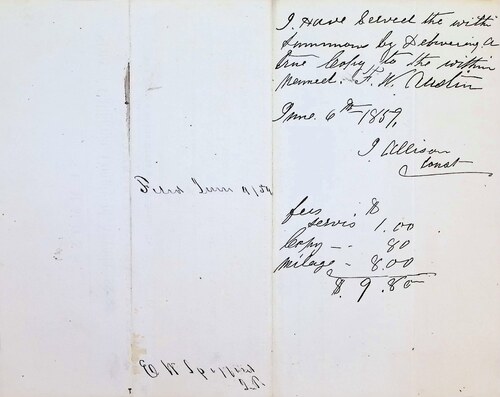 I. Have Served the with
Summons by Delivering a
true Copy to the within
named. F. W. Austin
June. 6th 1859,
I Allison
Const
fees $
servis 1.00
Copy -- 80
milage - 8.00
$. 9.80
Filed June
E W